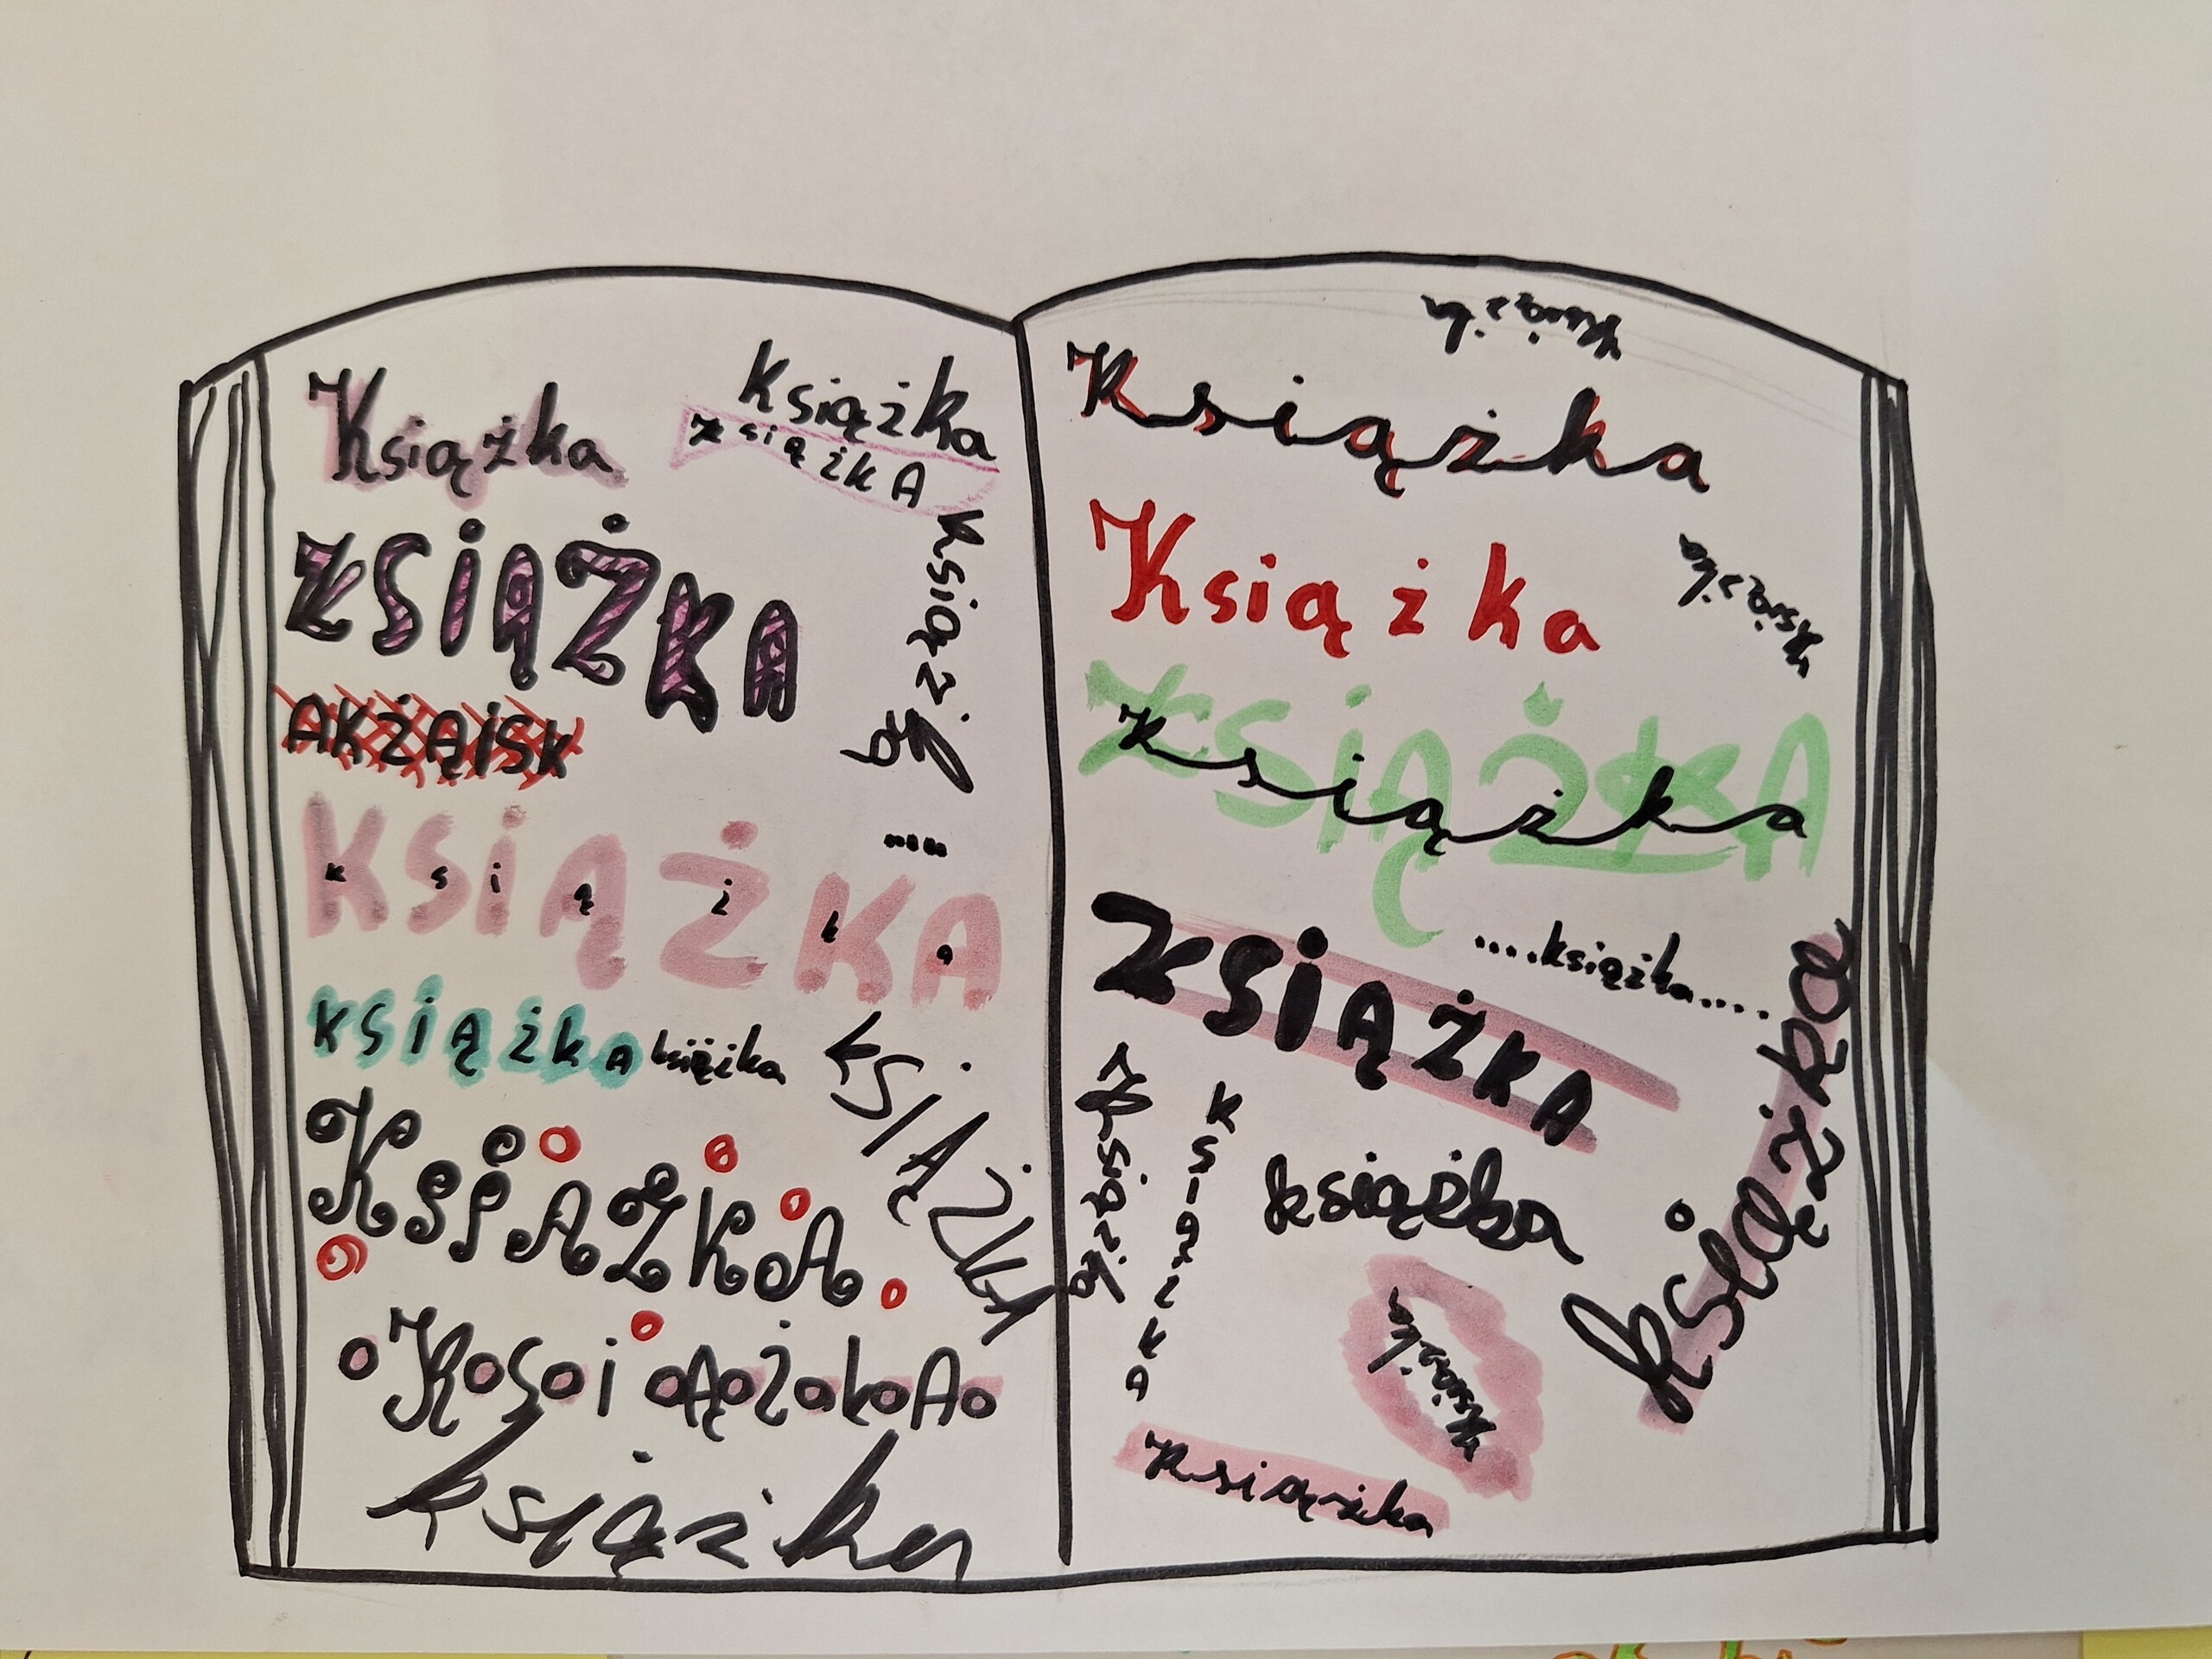 Książka
Książka
KsiążkA
KSIĄŻKA
Książka
AKŻĄISK
KSIĄŻKA
książka
....
KSIĄŻKA
książka
KSIĄŻKA
KSIĄŻKA
KosoioĄoŻokoAo
książka
Książka
Książka
Książka
Książka
KSIĄŻKA
Książka
....książka....
KSIĄŻKA
książka
Książka
KSIĄŻKA
książka
Książka
Książka